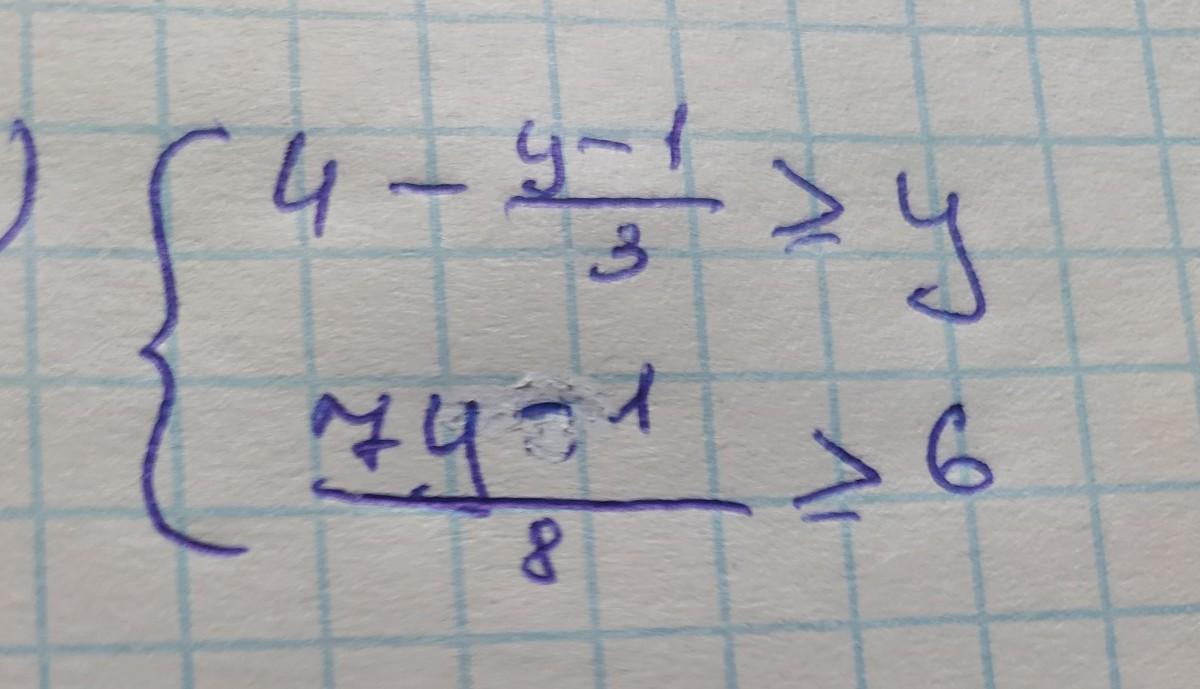 ) { 4 - \frac{y-1}{3} ≥ y
\frac{7y-1}{8} ≥ 6